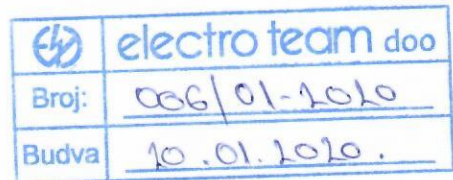 electro team doo
Broj: 006/01-2020
Budva 20.01.2020.